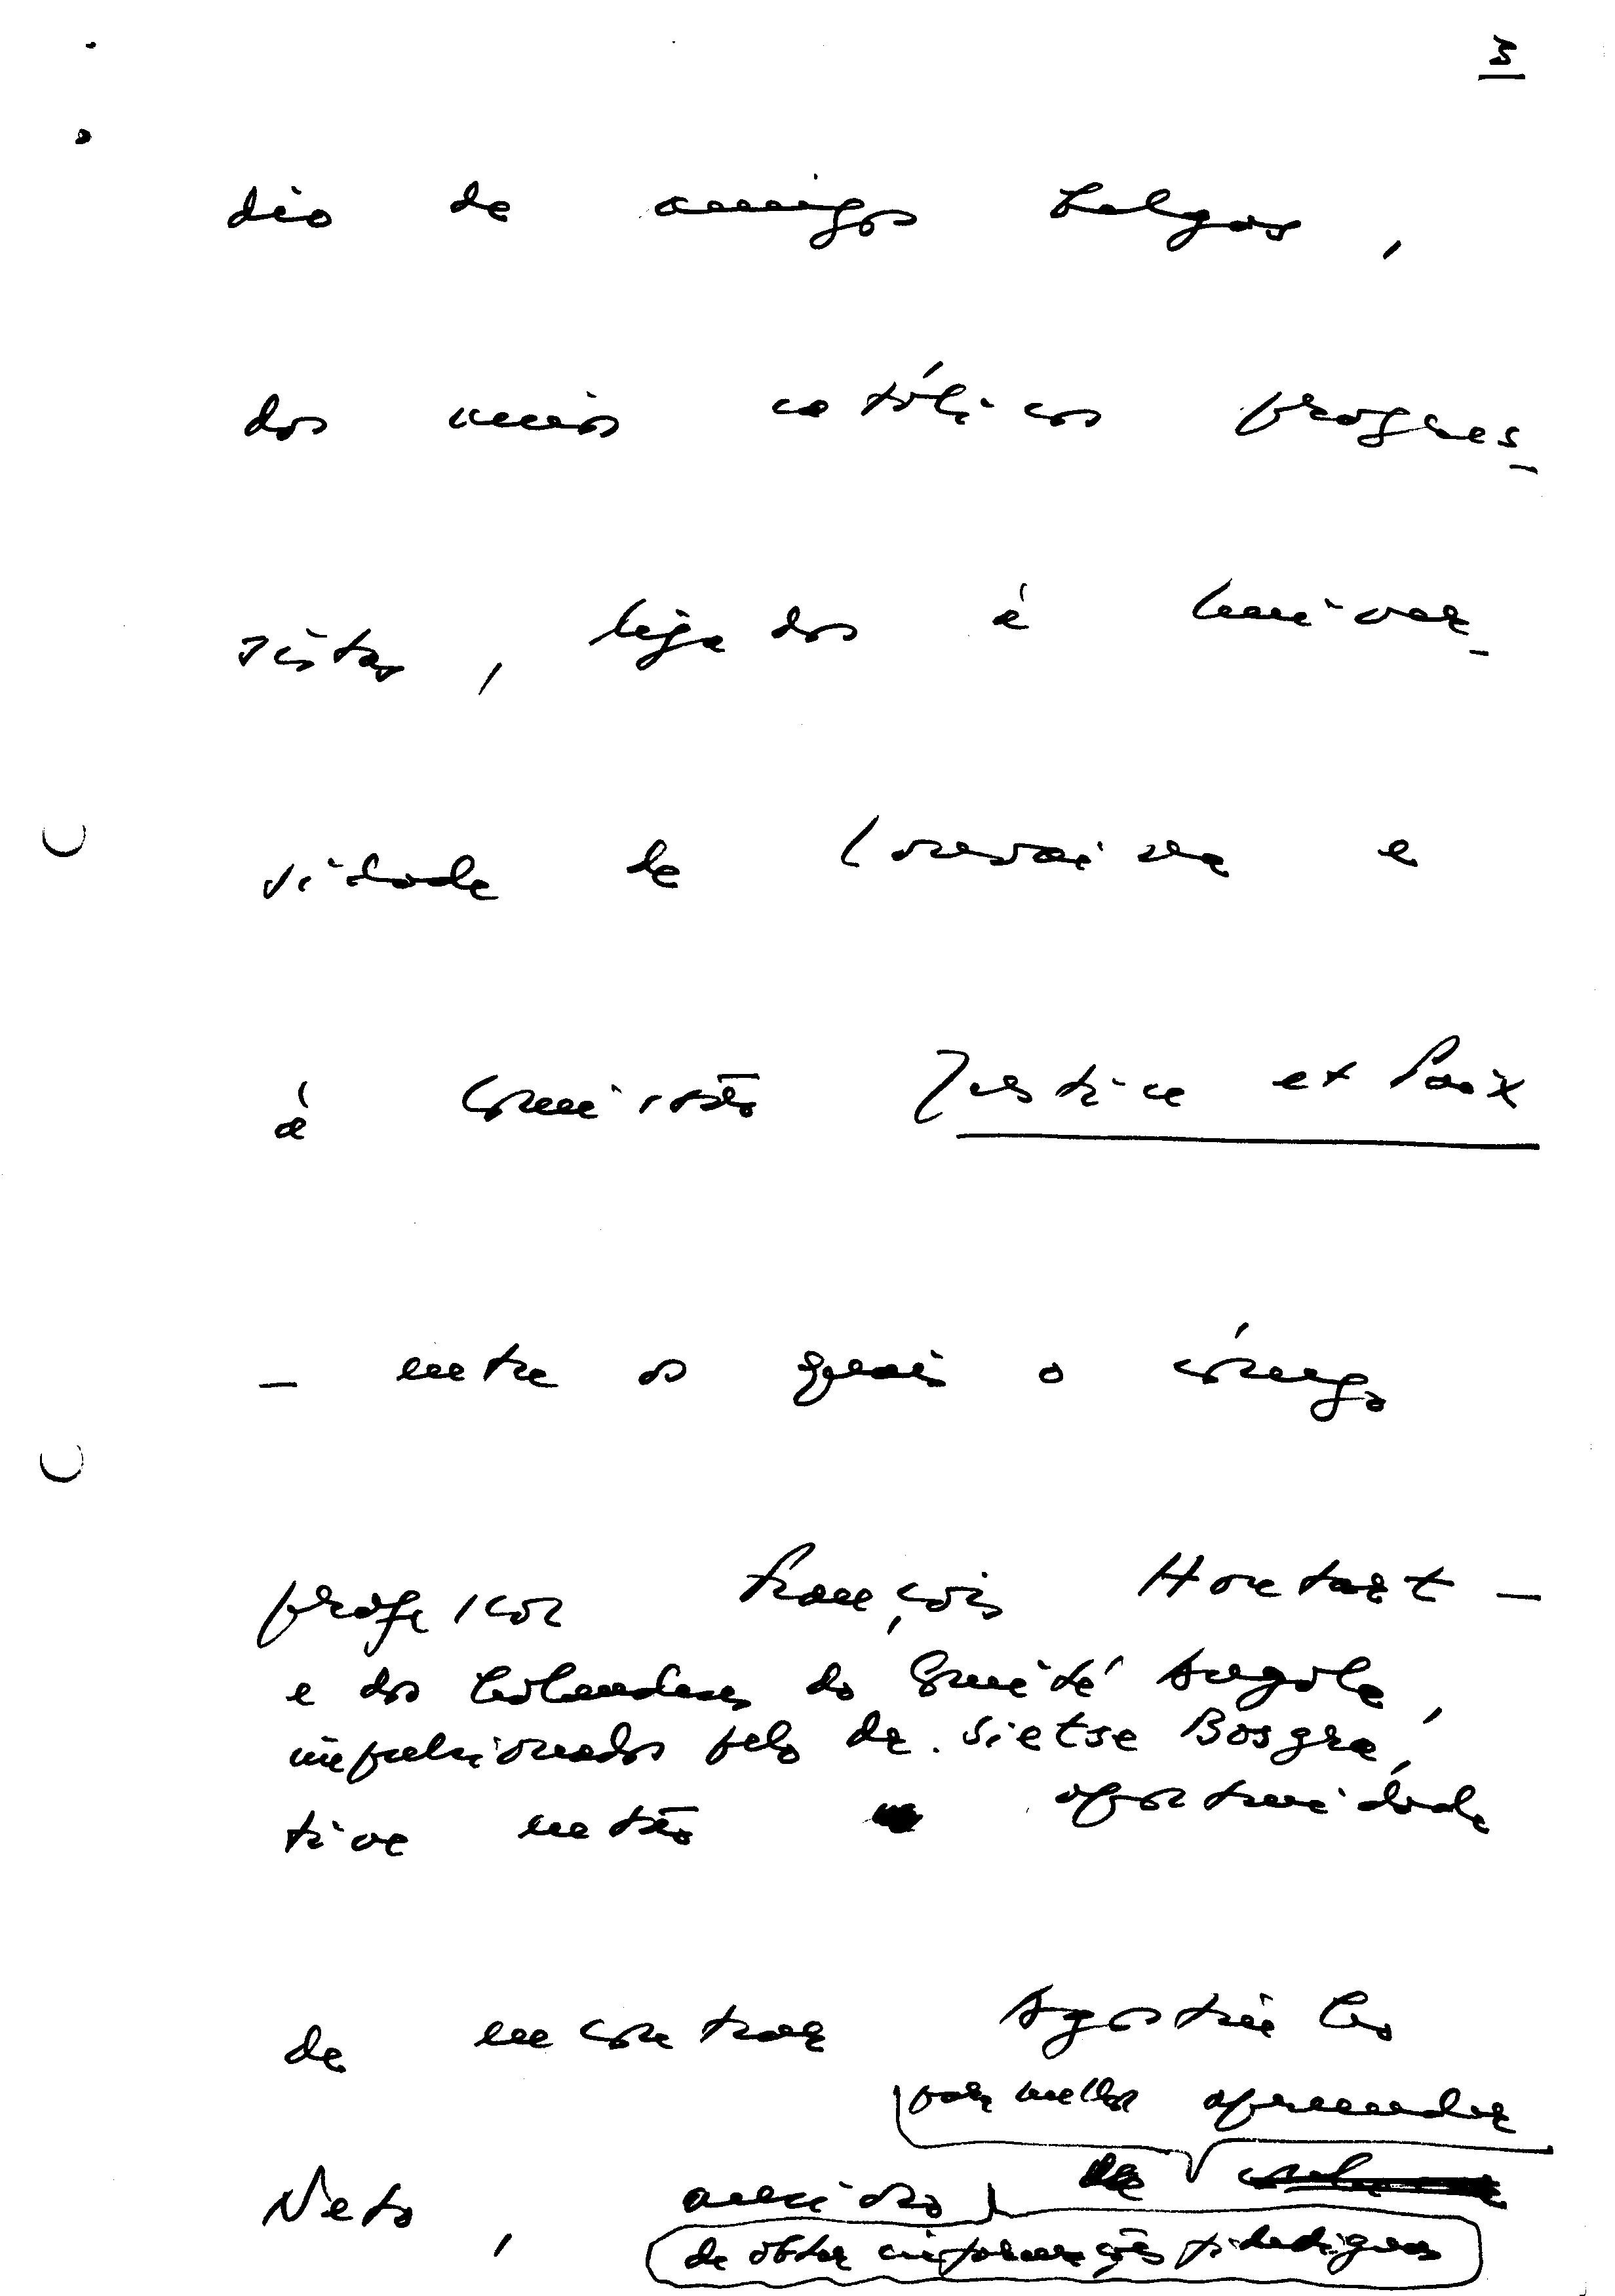 3
dio de amigos belgas,
dos meios católicos progres-
sistas, ligados à Univer-
sidade de Louvaina e
à Comissão Justice et Paix
- entre os quais o cónego
professor François Houtart -
e dos holandeses do Comité Angola,
impulsionados pelo dr. Sietse Bosgra,
tive então oportunidade
de encontrar Agostinho
para melhor apreender
Neto, ansioso de
de obter informações fidedignas